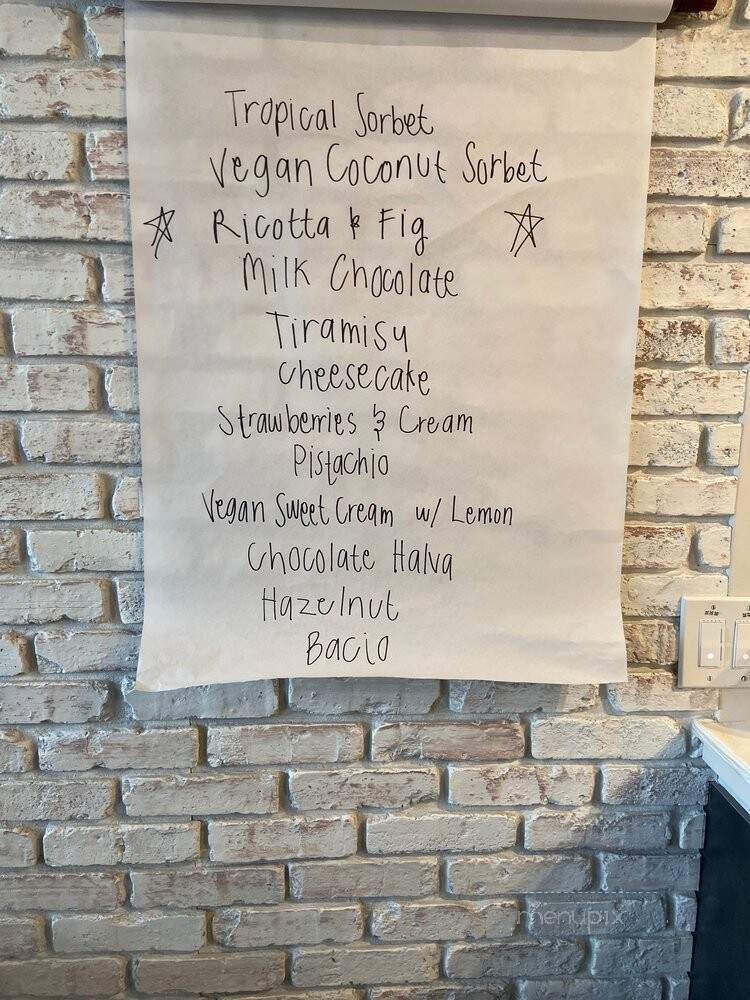 Tropical Sorbet
Vegan Coconut Sorbet
Ricotta & Fig
Milk Chocolate
Tiramisu
Cheesecake
Strawberries & Cream
Pistachio
Vegan Sweet Cream w/ Lemon
Chocolate Halva
Hazelnut
Bacio
menupix